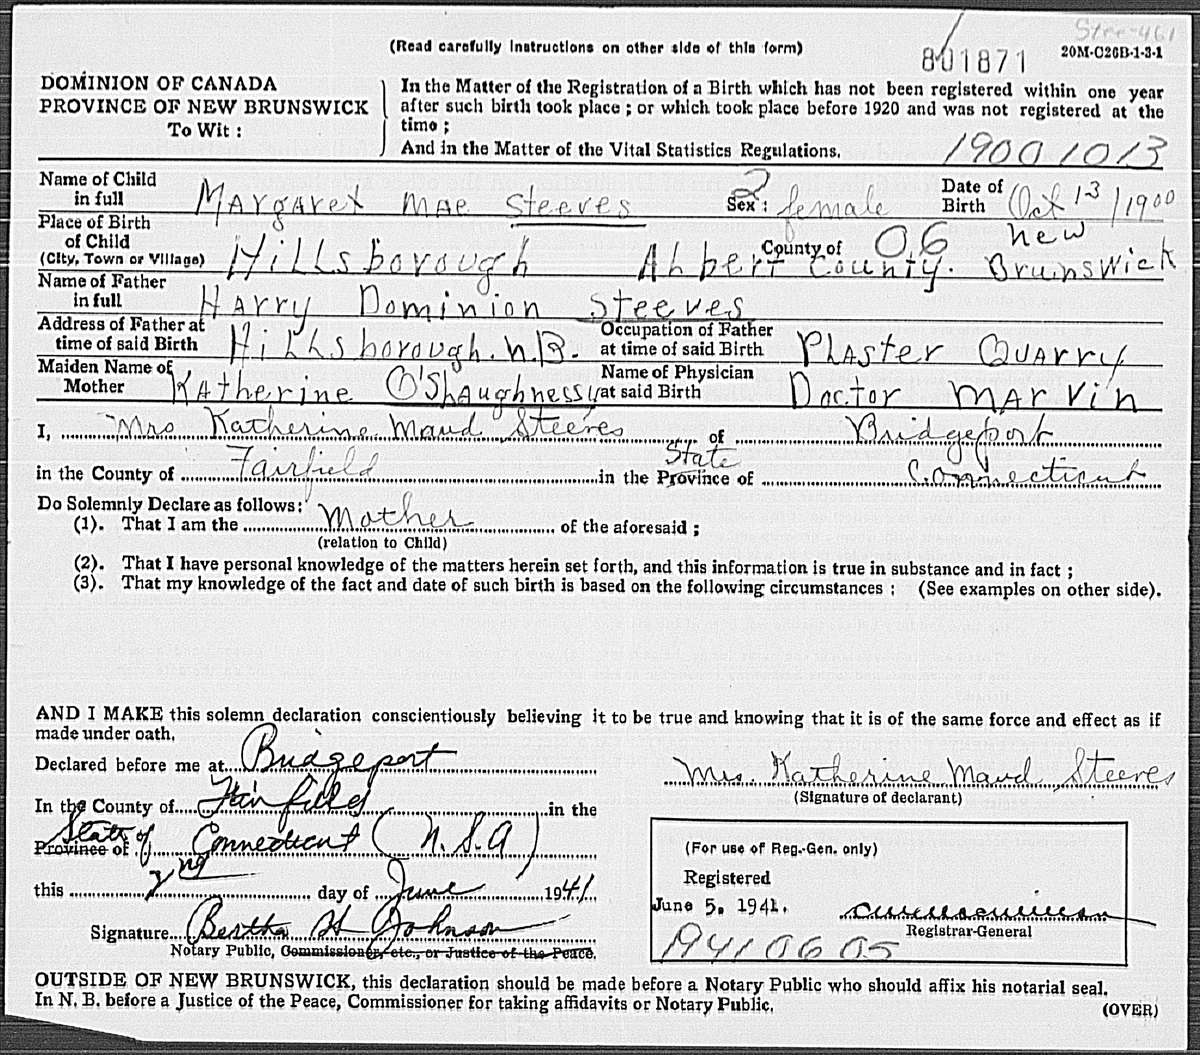 Stee-461
(Read carefully instructions on other side of this form)
801871
20M-C26B-1-3-1
DOMINION OF CANADA
PROVINCE OF NEW BRUNSWICK
To Wit :
In the Matter of the Registration of a Birth which has not been registered within one year
after such birth took place ; or which took place before 1920 and was not registered at the
time ;
And in the Matter of the Vital Statistics Regulations.
19001013
Name of Child in full Margaret Mae Steeves Sex : 2 female Date of Birth Oct 13/1900
Place of Birth of Child (City, Town or Village) Hillsborough Albert County. County of 06 New Brunswick
Name of Father in full Harry Dominion Steeves
Address of Father at time of said Birth Hillsborough. N.B. Occupation of Father at time of said Birth Plaster Quarry
Maiden Name of Mother Katherine O'Shaughnessy Name of Physician at said Birth Doctor Marvin
I, Mrs Katherine Maud Steeves of Bridgeport
in the County of Fairfield in the Province of State Connecticut
Do Solemnly Declare as follows:
(1). That I am the Mother of the aforesaid ;
(relation to Child)
(2). That I have personal knowledge of the matters herein set forth, and this information is true in substance and in fact ;
(3). That my knowledge of the fact and date of such birth is based on the following circumstances : (See examples on other side).
AND I MAKE this solemn declaration conscientiously believing it to be true and knowing that it is of the same force and effect as if
made under oath.
Declared before me at Bridgeport
Mrs. Katherine Maud Steeves
(Signature of declarant)
In the County of Fairfield in the
State of Province of Connecticut (U.S.A)
this 2nd day of June 1941
Signature Bertha H Johnson
Notary Public, Commissioner, etc., or Justice of the Peace.
(For use of Reg.-Gen. only)
Registered
June 5, 1941.
Registrar-General
19410605
OUTSIDE OF NEW BRUNSWICK, this declaration should be made before a Notary Public who should affix his notarial seal.
In N. B. before a Justice of the Peace, Commissioner for taking affidavits or Notary Public.
(OVER)